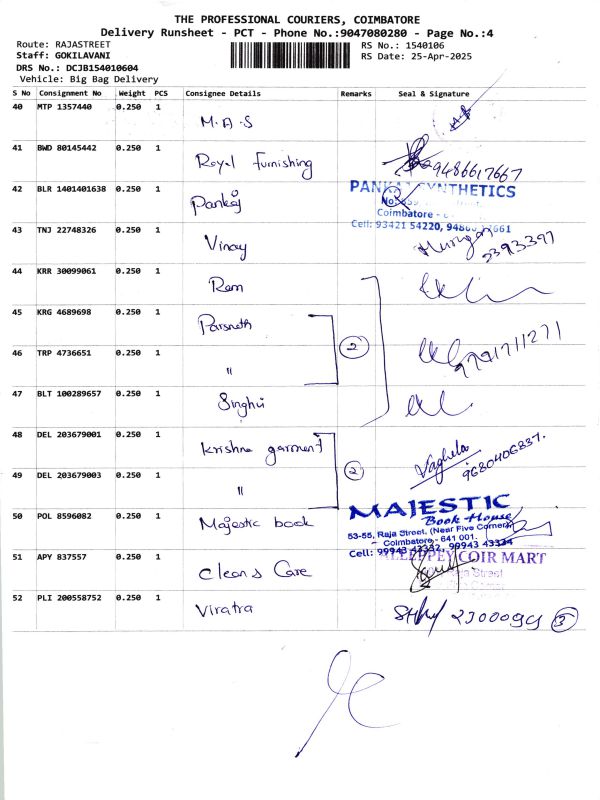 THE PROFESSIONAL COURIERS, COIMBATORE
Delivery Runsheet - PCT - Phone No.:9047080280 - Page No.:4
Route: RAJASTREET
RS No.: 1540106
Staff: GOKILAVANI
RS Date: 25-Apr-2025
DRS No.: DCJB154010604
Vehicle: Big Bag Delivery
S No Consignment No Weight PCS Consignee Details Remarks Seal & Signature
40 MTP 1357440 0.250 1 M.A.S
41 BWD 80145442 0.250 1 Royal furnishing 9486617667
42 BLR 1401401638 0.250 1 Pankaj
PANKAJ SYNTHETICS
Coimbatore -
Cell: 93421 54220,
43 TNJ 22748326 0.250 1 Vinay Murugan
44 KRR 30099061 0.250 1 Ram
45 KRG 4689698 0.250 1 Parsneth
2
46 TRP 4736651 0.250 1 "
9791711271
47 BLT 100289657 0.250 1 Singhvi
48 DEL 203679001 0.250 1 Krishna garment Vaghela
9680406837.
2
49 DEL 203679003 0.250 1 "
50 POL 8596082 0.250 1 Majestic book
MAJESTIC
Book House
53-55, Raja Street, (Near Five Corner)
Coimbatore - 641 001.
Cell: 99943 43332, 99943 43334
51 APY 837557 0.250 1 Clean & Care
ALLEPPEY COIR MART
Raja Street
52 PLI 200558752 0.250 1 Viratra
3